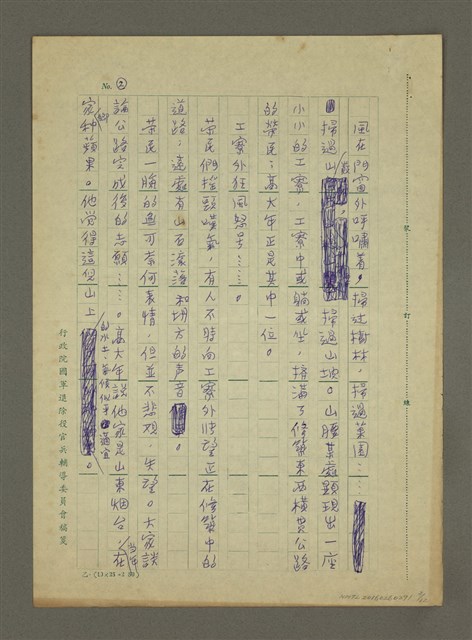 No. ②
號
訂
線
風在門窗外呼嘯著，掃过樹林，掃過菜園……
掃過山巖，掃過山坡。山腰某處顯現出一座
小小的工寮，工寮中或躺或坐，擠滿了修築東西橫貫公路
的榮民；高大年正是其中一位。
工寮外狂風怒号……。
榮民們搖頭嘆氣，有人不時向工寮外張望正在修築中的
道路；遠處有山石滾落和坍方的声音。
榮民一臉的無可奈何表情，但並不悲观、失望。大家談
論公路完成後的志願……。高大年說他家是山東烟台，在當年
家種蘋果。他觉得這個山上的水土、氣候似乎適宜。
行政院國軍退除役官兵輔導委員會稿箋